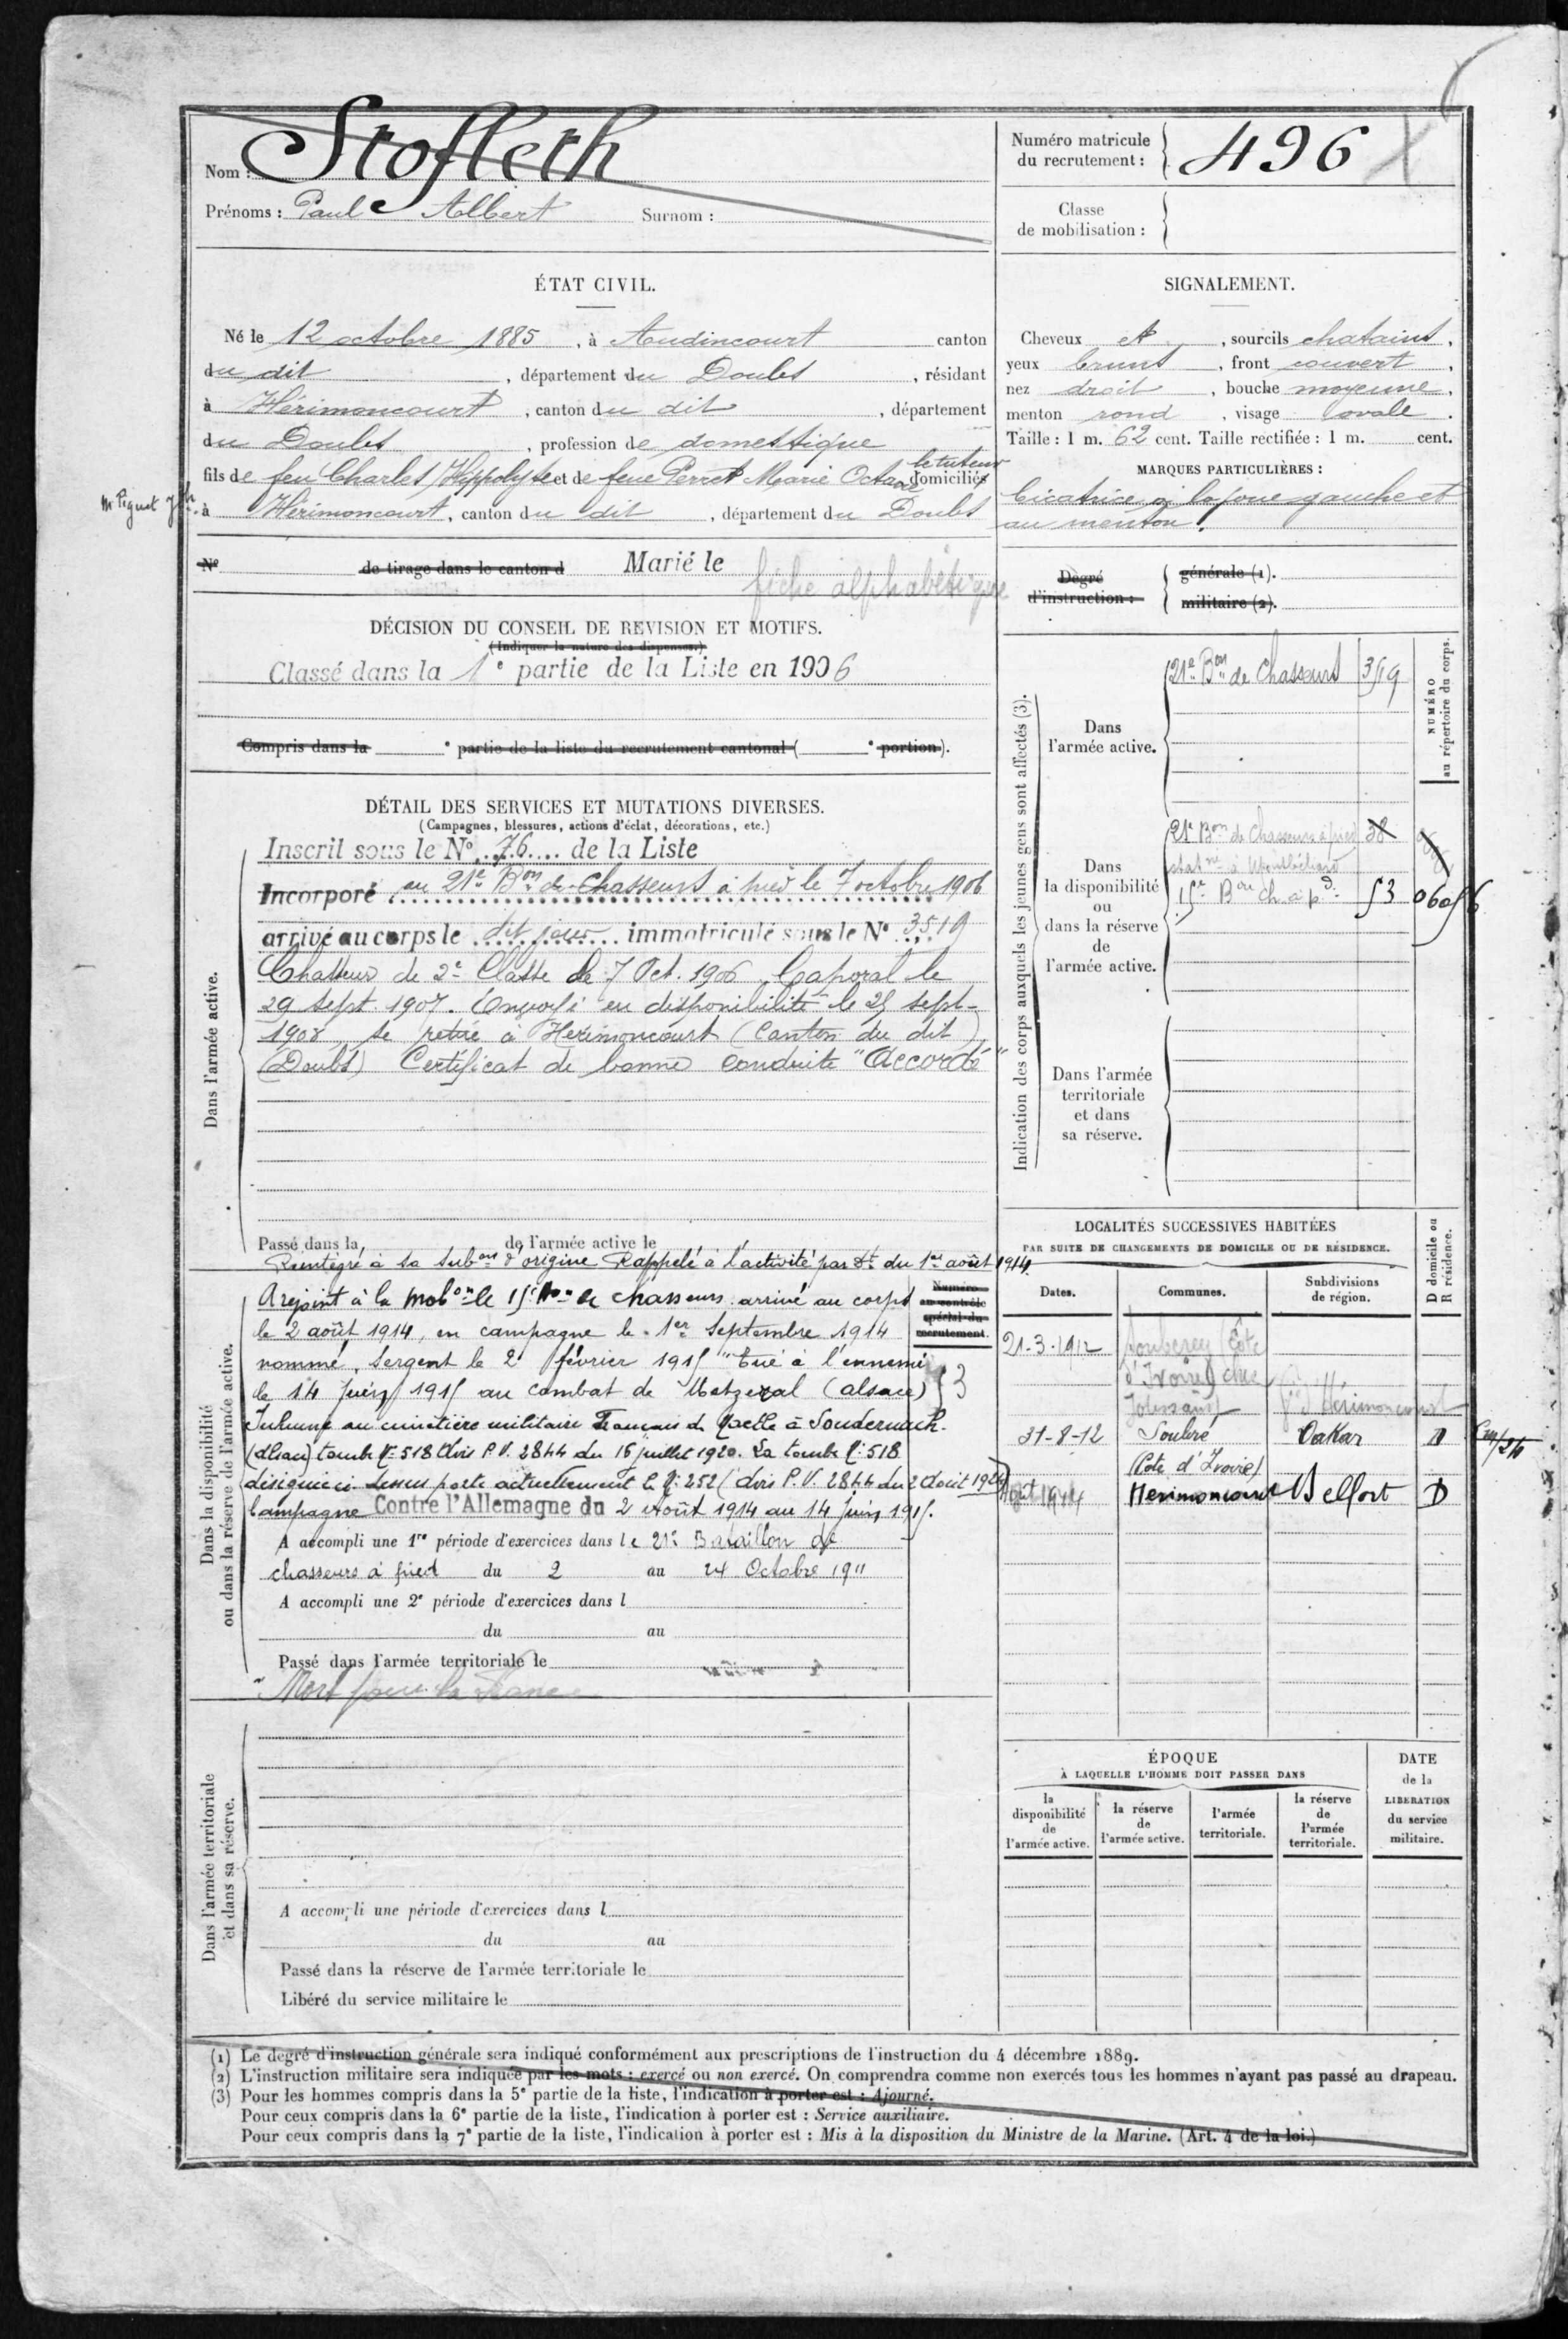 Nom : Stofleth
Prénoms : Paul Albert Surnom :
Numéro matricule
du recrutement : 496
Classe
de mobilisation :
ÉTAT CIVIL.
Né le 12 octobre 1885, à Audincourt canton
du dit, département du Doubs, résidant
à Hérimoncourt, canton du dit, département
du Doubs, profession de domestique
le tuteur
fils de feu Charles Hippolyte et de feue Perret Marie Octavie domiciliés
à Hérimoncourt, canton du dit, département du Doubs
SIGNALEMENT.
Cheveux et, sourcils chatains,
yeux bruns, front couvert,
nez droit, bouche moyenne,
menton rond, visage ovale.
Taille : 1 m. 62 cent. Taille rectifiée : 1 m. cent.
MARQUES PARTICULIÈRES :
Cicatrice à la joue gauche et
au menton.
N° de tirage dans le canton d Marié le
fiche alphabétique
Degré
d'instruction :
générale (1).
militaire (2).
DÉCISION DU CONSEIL DE REVISION ET MOTIFS.
(Indiquer la nature des dispenses.)
Classé dans la 1e partie de la Liste en 1906
Compris dans la e partie de la liste du recrutement cantonal ( e portion).
DÉTAIL DES SERVICES ET MUTATIONS DIVERSES.
(Campagnes, blessures, actions d'éclat, décorations, etc.)
Dans l'armée active.
Inscrit sous le N° 76 de la Liste
Incorporé au 21e Bon de Chasseurs à pied le 7 octobre 1906
arrivé au corps le dit jour immatriculé sous le N° 3519
Chasseur de 2e Classe le 7 Oct. 1906 Caporal le
29 sept. 1907. Envoyé en disponibilité le 25 sept.
1908 se retire à Herimoncourt (Canton du dit)
(Doubs) Certificat de bonne conduite "Accordé"
Passé dans la de l'armée active le
Réintégré à sa subon d'origine Rappelé à l'activité par dt du 1er août 1914
Dans la disponibilité
ou dans la réserve de l'armée active.
Numéro
au contrôle
spécial du
recrutement.
A rejoint à la mobon le 15e Bon de chasseurs arrivé au corps
le 2 août 1914, en campagne le 1er Septembre 1914
nommé Sergent le 2 février 1915 "tué à l'ennemi
le 14 Juin 1915 au combat de Metzeral (alsace) 53
Inhumé au cimetière militaire Français de à Soudernach
(Alsace) tombe N° 518 Avis P.V. 2844 du 16 juillet 1920. La tombe N° 518
désignée ci-dessus porte actuellement le N° 252 (Avis P.V. 2844 du 2 Août 1924)
Campagne Contre l'Allemagne du 2 Août 1914 au 14 Juin 1915.
A accompli une 1re période d'exercices dans le 21e Bataillon de
chasseurs à pied du 2 au 24 Octobre 1911
A accompli une 2e période d'exercices dans l
du au
Passé dans l'armée territoriale le
"Mort pour la France
Dans l'armée territoriale
et dans sa réserve.
A accompli une période d'exercices dans l
du au
Passé dans la réserve de l'armée territoriale le
Libéré du service militaire le
Indication des corps auxquels les jeunes gens sont affectés (3).
NUMÉRO
au répertoire du corps.
Dans
l'armée active.
21e Bon de Chasseurs 3519
Dans
la disponibilité
ou
dans la réserve
de
l'armée active.
21e Bon de Chasseurs à pied 38
à Montbéliard
15e Bon ch. à pd 53
Dans l'armée
territoriale
et dans
sa réserve.
LOCALITÉS SUCCESSIVES HABITÉES
PAR SUITE DE CHANGEMENTS DE DOMICILE OU DE RÉSIDENCE.
Dates. Communes. Subdivisions
de région.
D domicile ou
R résidence.
21-3-1912 (Côte
d'Ivoire) chez
Hérimoncourt
31-8-12 Soubré Dakar D
(Côte d'Ivoire)
Août 1914 Herimoncourt Belfort D
ÉPOQUE
À LAQUELLE L'HOMME DOIT PASSER DANS
la
disponibilité
de
l'armée active.
la réserve
de
l'armée active.
l'armée
territoriale.
la réserve
de
l'armée
territoriale.
DATE
de la
LIBÉRATION
du service
militaire.
(1) Le degré d'instruction générale sera indiqué conformément aux prescriptions de l'instruction du 4 décembre 1889.
(2) L'instruction militaire sera indiquée par les mots : exercé ou non exercé. On comprendra comme non exercés tous les hommes n'ayant pas passé au drapeau.
(3) Pour les hommes compris dans la 5e partie de la liste, l'indication à porter est : Ajourné.
Pour ceux compris dans la 6e partie de la liste, l'indication à porter est : Service auxiliaire.
Pour ceux compris dans la 7e partie de la liste, l'indication à porter est : Mis à la disposition du Ministre de la Marine. (Art. 4 de la loi.)